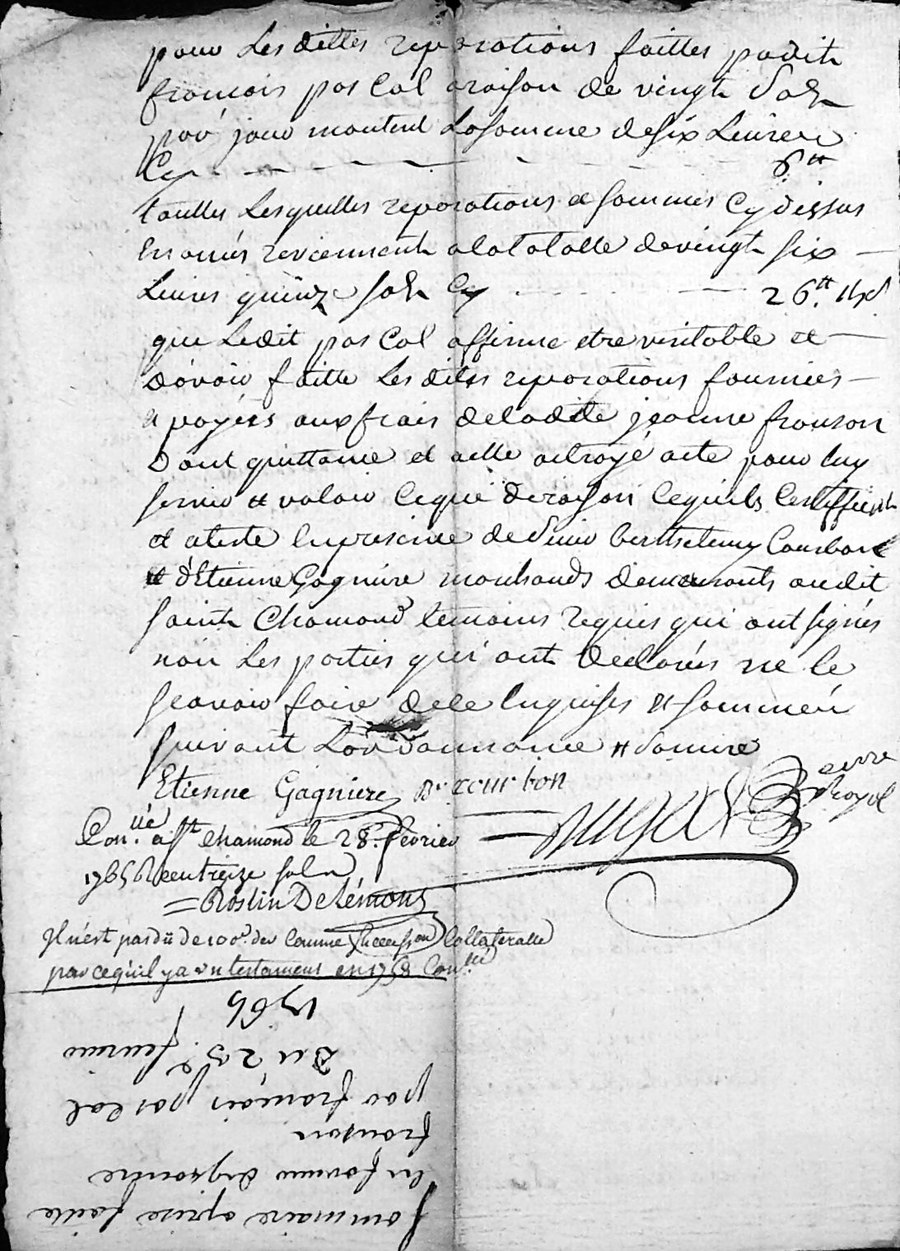 pour Les dittes reparations faittes par dit
francois pascal araison de vingt sols
par jour montent La somme de six Livres
Cy 6.tt
toutes Lesquelles reparations et sommes Cy dessus
reviennent a la totalle de vingt six
Livres quinze sols Cy 26.tt 15s
que Ledit pascal affirme etre veritable et
D'avoir faitte Les dites reparations fournies
a payées aux frais de ladite jeanne franson
Dont quittance et acte octroyé acte pour luy
servir et valoir Ce que de raison
et ateste en presence de Sieur berthelemy Courbon
et d'Etienne Gagniere marchands demeurants audit
Saint Chamond temoins requis qui ont signés
non Les parties qui ont declarés ne le
scavoir faire de ce enquises et sommées
suivant L'ordonnance
Etienne Gagniere Bmy courbon
Con.llé a St chamond le 28.e fevrier
1765 Receu treize sols
Roslin Delémont
Il n'est pas dû de 100.e der Comme succession Collateralle
parce qu'il y a un testament en 1758 Con.llé
Sommaire aprise faite
en forme
franson
par françois pascal
Du 23e fevrier
1765